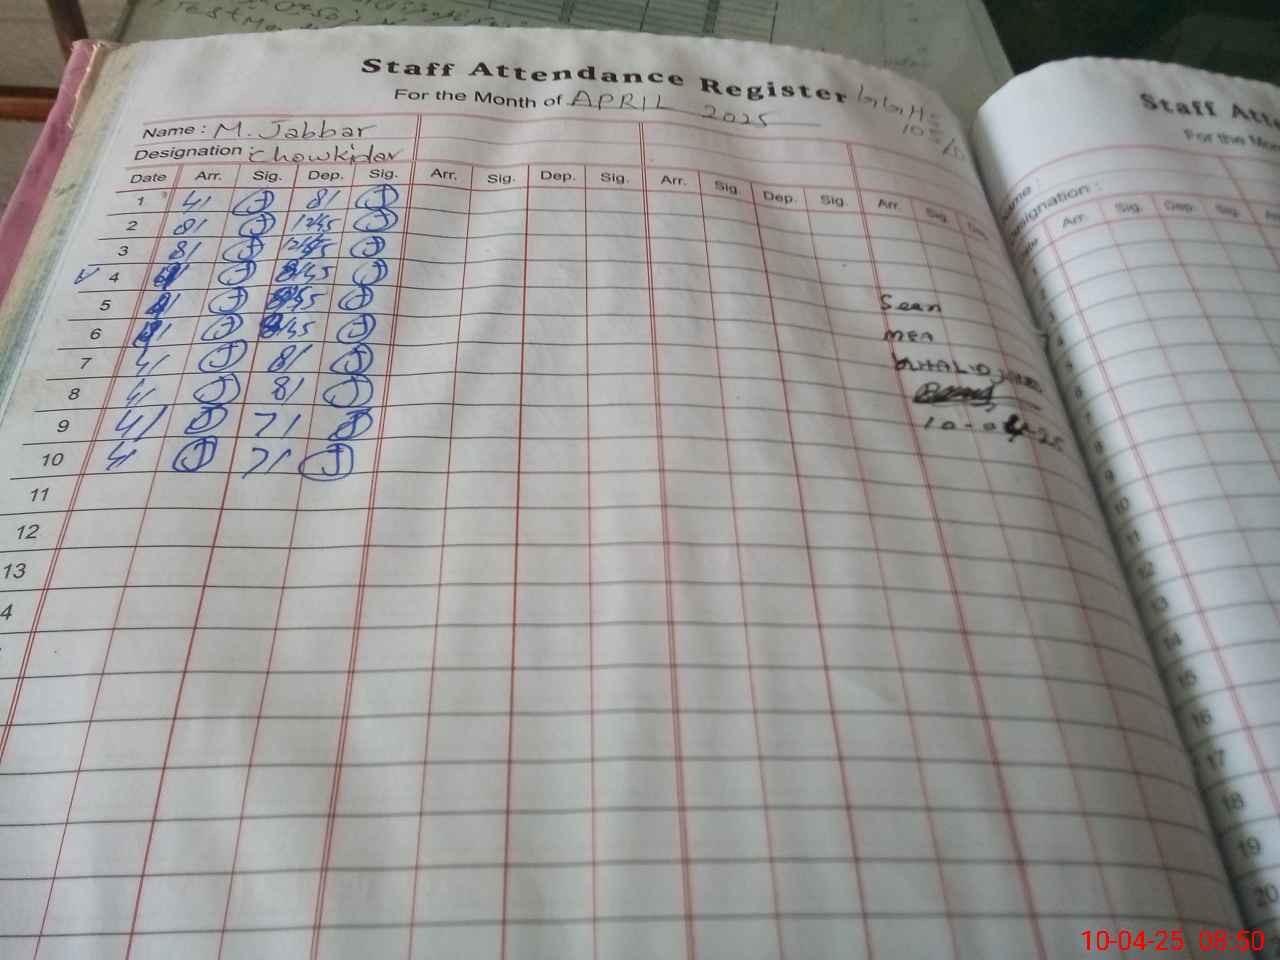 Staff Attendance Register
For the Month of APRIL 2025
Name : M. Jabbar
Designation : Chowkidar
Date Arr. Sig. Dep. Sig. Arr. Sig. Dep. Sig. Arr. Sig. Dep. Sig. Arr. Sig.
1 4/ J 8/ J
2 8/ J 12/45 J
3 8/ J 12/45 J
4 J J
5 8/ J J
6 8/ J J
7 4/ J 8/ J
8 4/ J 8/ J
9 4/ J 7/ J
10 4/ J 7/ J
11
12
13
Seen
MEA
Staff Atte
For the Mon
Name :
signation :
Arr. Sig. Dep. Sig. Arr
10
11
12
13
14
15
16
17
18
19
20
10-04-25 08:50